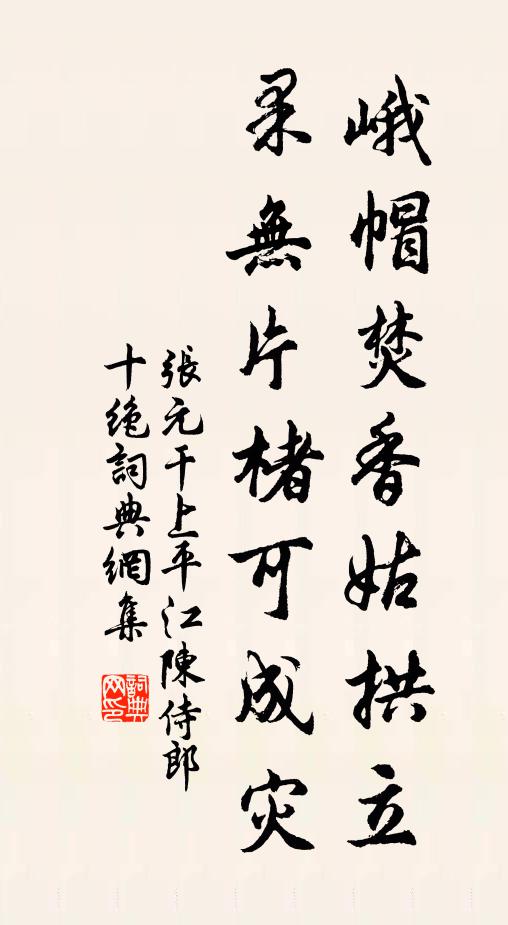 峨帽焚香姑拱立
果無片楮可成灾
張元干上平江陳侍郎
十絶詞典網集
詞典
网印